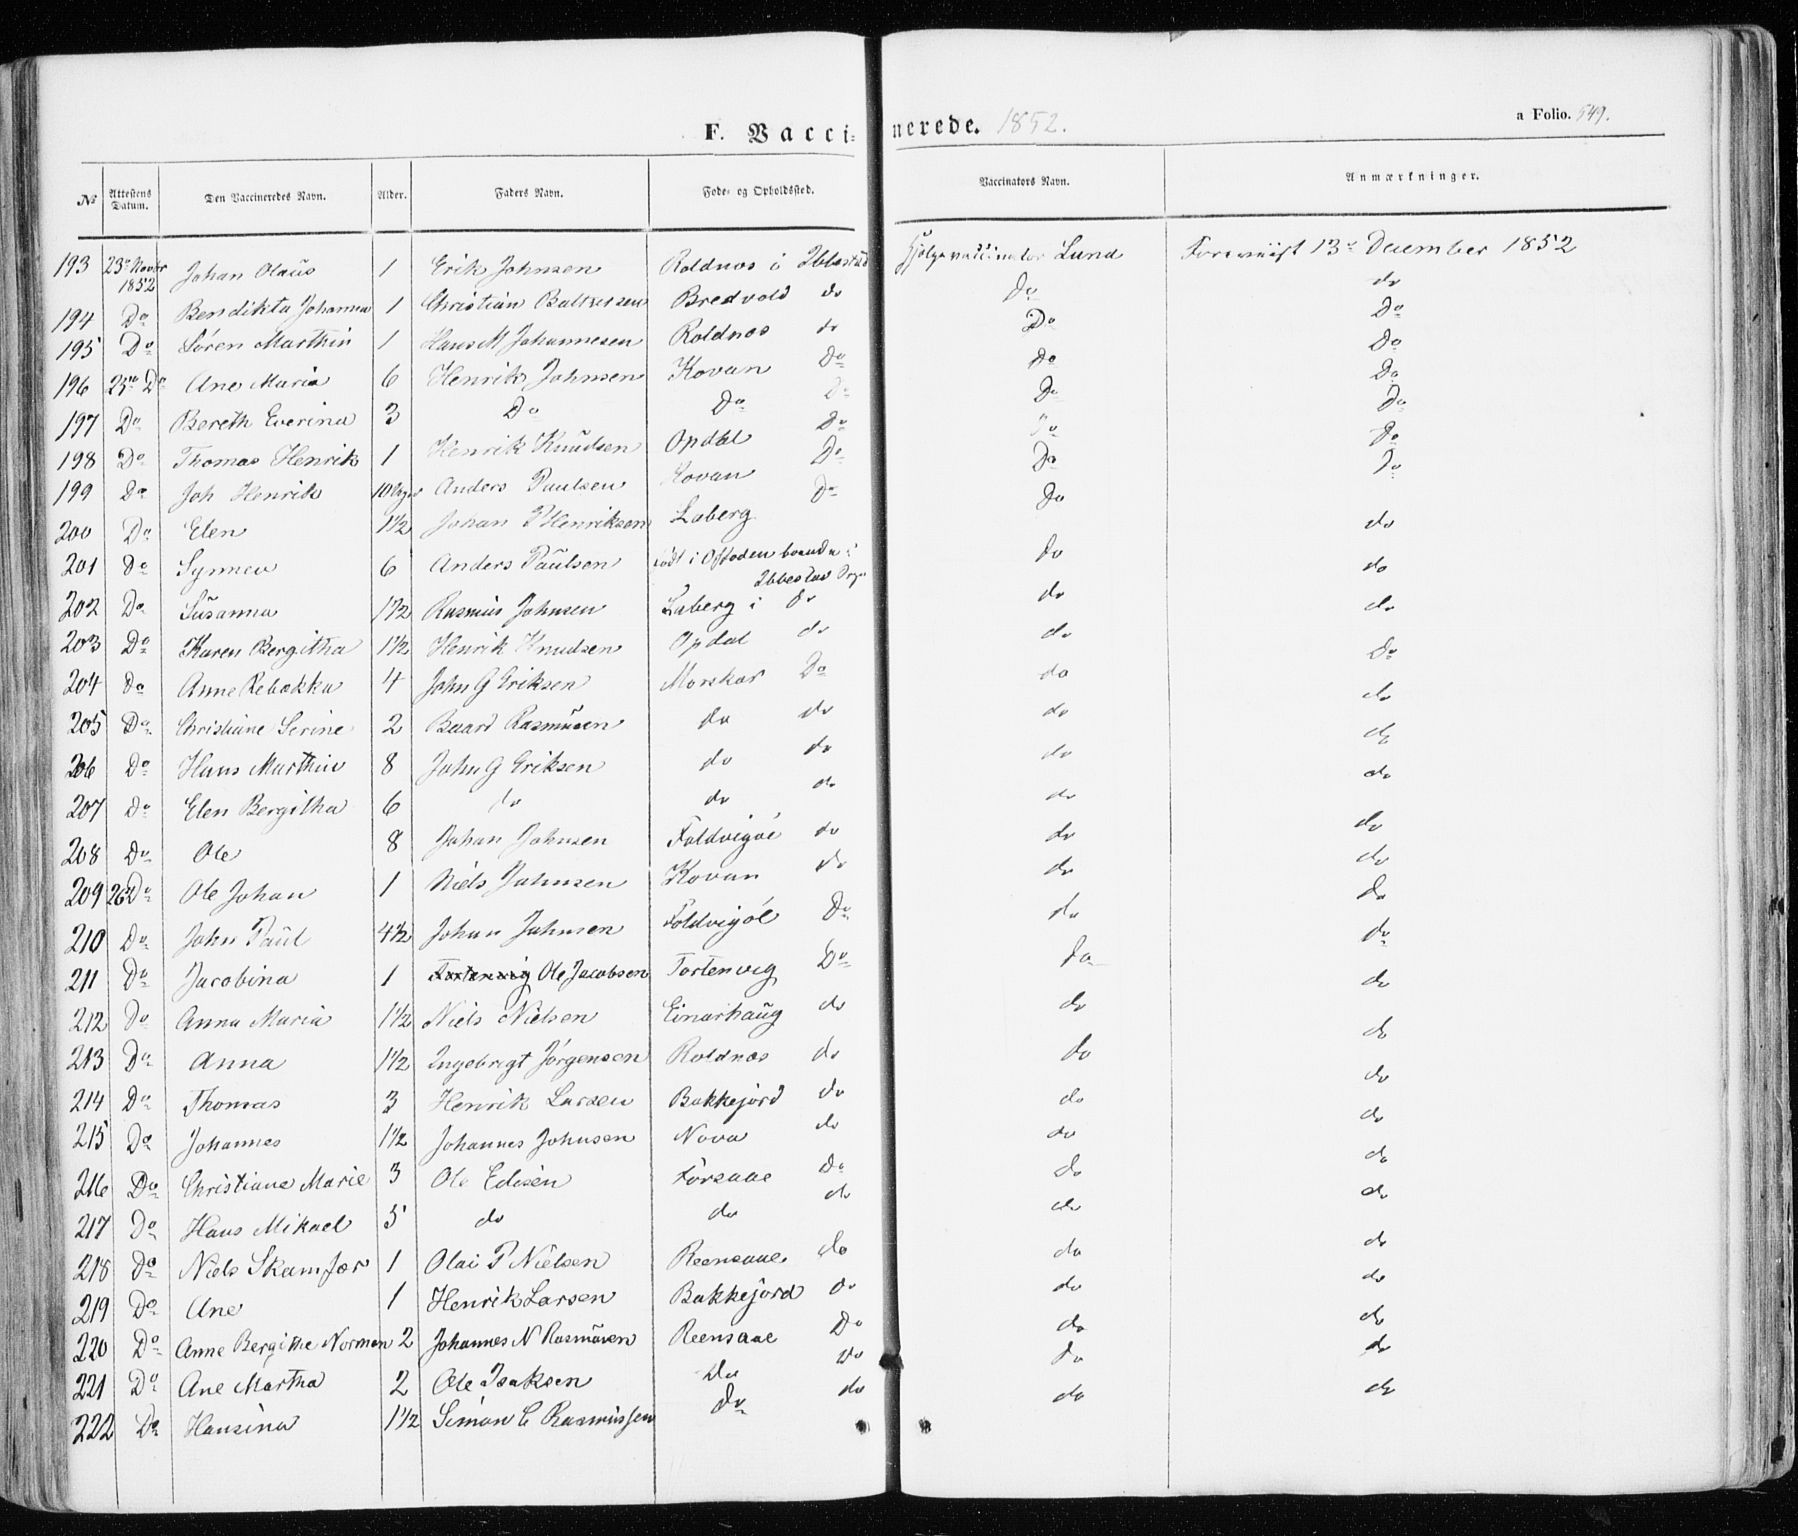 F. Vaccinerede. 1852. a Folio. 549.
No Attestens Datum. Den Vaccineredes Navn. Alder. Faders Navn. Føde- og Opholdssted. Vaccinators Navn. Anmærkninger.
193 23de Novbr 1852 Johan Olaüs 1 Erik Johnsen Roldnæs i Ibbestad Hjelpevaccinator Lund Foreviist 13de December 1852
194 Do Bendikta Johanna 1 Christian Baltzersen Bredvold do Do do
195 Do Søren Marthin 1 Hans M Johannesen Roldnæs do Do Do
196 25de Do Ane Maria 6 Henrik Johnsen Kovan Do Do Do
197 Do Bereth Everina 3 Do Do Do Do Do
198 Do Thomas Henrik 1 Henrik Knudsen Opdal Do Do Do
199 Do Joh Henrik 10 Uger Anders Paulsen Kovan Do Do Do
200 Do Elen 1½ Johan P Henriksen Laberg Do Do Do
201 Do Synnev 6 Anders Paulsen født i Ofstoden boende i Ibbestad Do do
202 Do Susanna 1½ Rasmus Johnsen Laberg i do do do
203 Do Karen Bergitha 1½ Henrik Knudsen Opdal do do do
204 Do Anne Rebekka 4 John G Eriksen Morskar Do do Do
205 Do Christiane Serine 2 Baard Rasmusen do do do do
206 Do Hans Marthin 8 John G Eriksen do do do do
207 Do Elen Bergitha 6 do do do do do
208 Do Ole 8 Johan Johnsen Foldvigøe do do do
209 26de Do Ole Johan 1 Niels Johnsen Kovan do do do
210 Do John Paul 4½ Johan Johnsen Foldvigøe Do do do
211 Do Jacobina 1 Ole Jacobsen Tortenvig Do Do do
212 Do Anna Maria 1½ Niels Nielsen Einarhaug do do do
213 Do Anna 1½ Ingebrigt Jørgensen Roldnæs do do do
214 Do Thomas 3 Henrik Larsen Bakkejord do do do
215 Do Johannes 1½ Johannes Johnsen Nova do do do
216 Do Christiane Marie 3 Ole Edisen Førsaae Do do do
217 Do Hans Mikael 5 do do do do do
218 Do Niels Skamfær 1 Olai P Nielsen Reensaae do do do
219 Do Ane 1 Henrik Larsen Bakkejord do do do
220 Do Anne Bergithe Norman 2 Johannes N Rasmusen Reensaae Do do do
221 Do Ane Martha 2 Ole Isaksen Do do do do
222 Do Hansina 1½ Simon C Rasmussen Do do do do